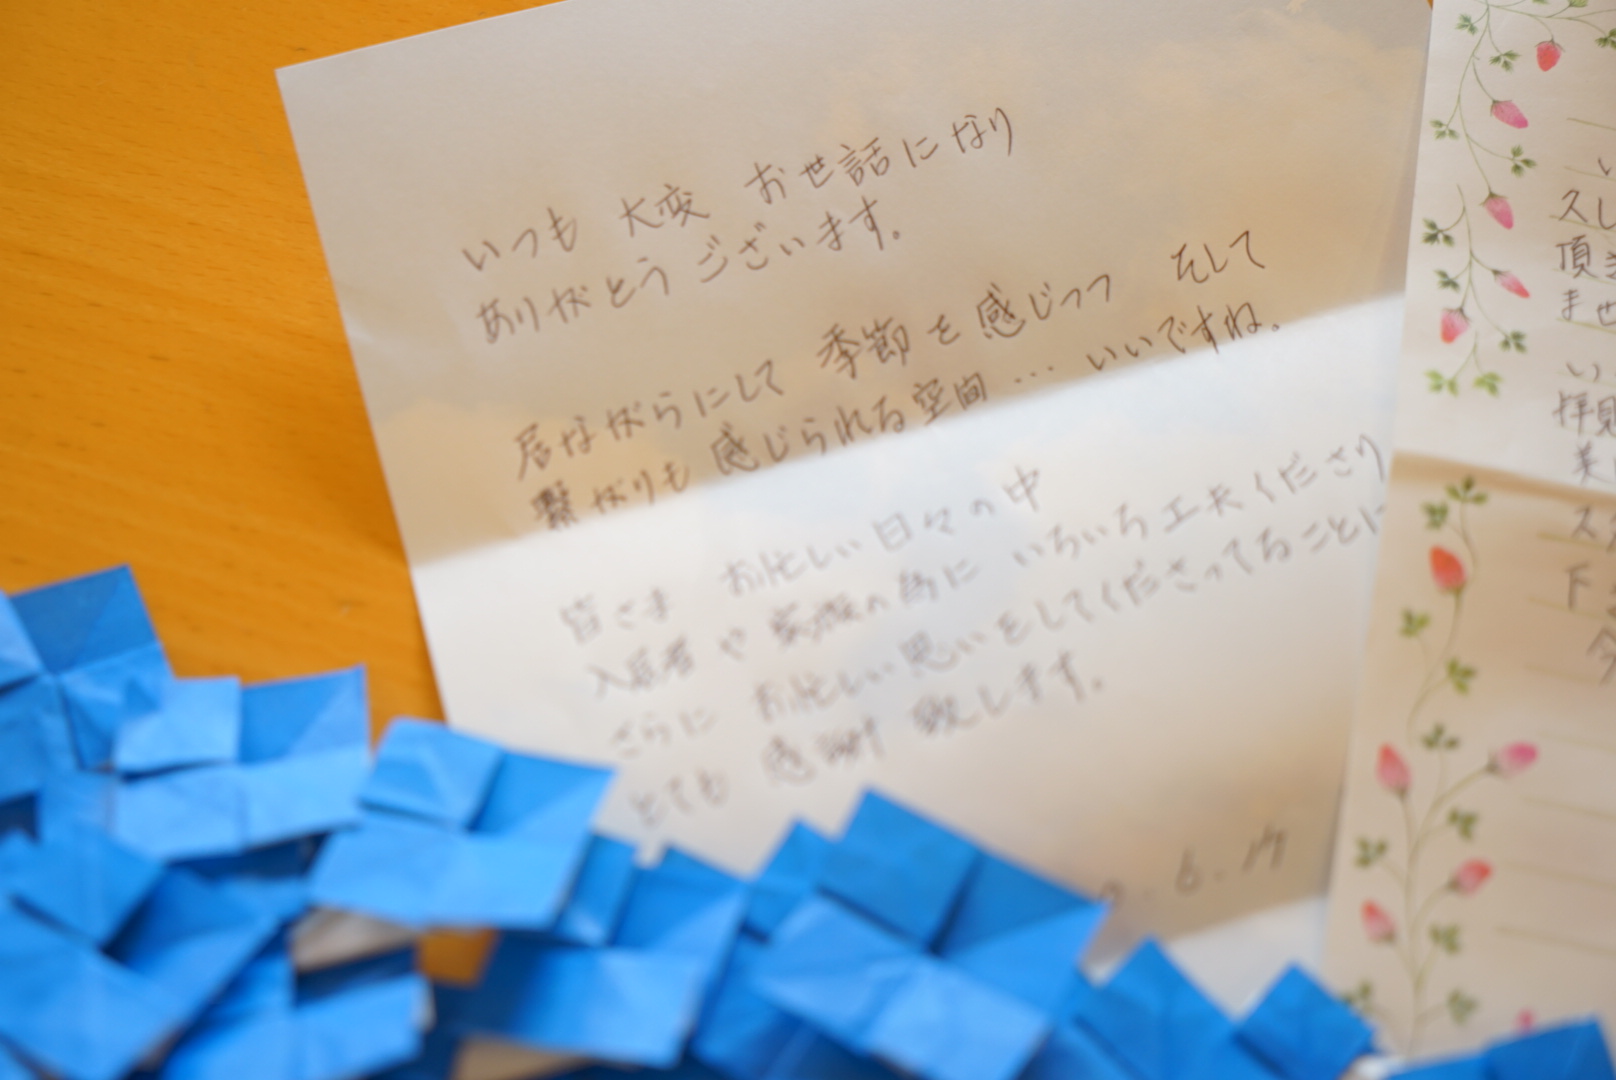 いつも 大変 お世話になり
ありがとうございます。
居ながらにして 季節を感じつつ そして
繋がりも感じられる空間… いいですね。
皆さま お忙しい日々の中
入居者や家族の為に いろいろ工夫くださり
さらに お忙しい思いをしてくださってることに
とても 感謝 致します。
.6.17
い
スし
頂き
ませ
い
拝見
美し
ス
下